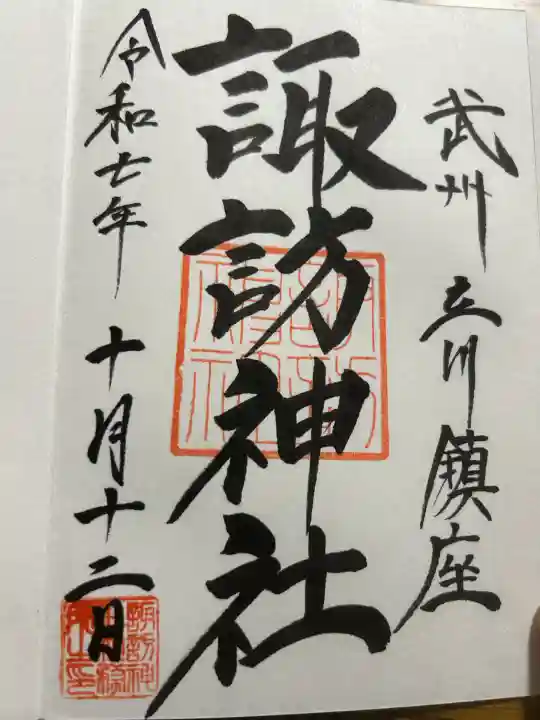 武州 立川鎮座
諏訪神社
令和七年 十月十二日